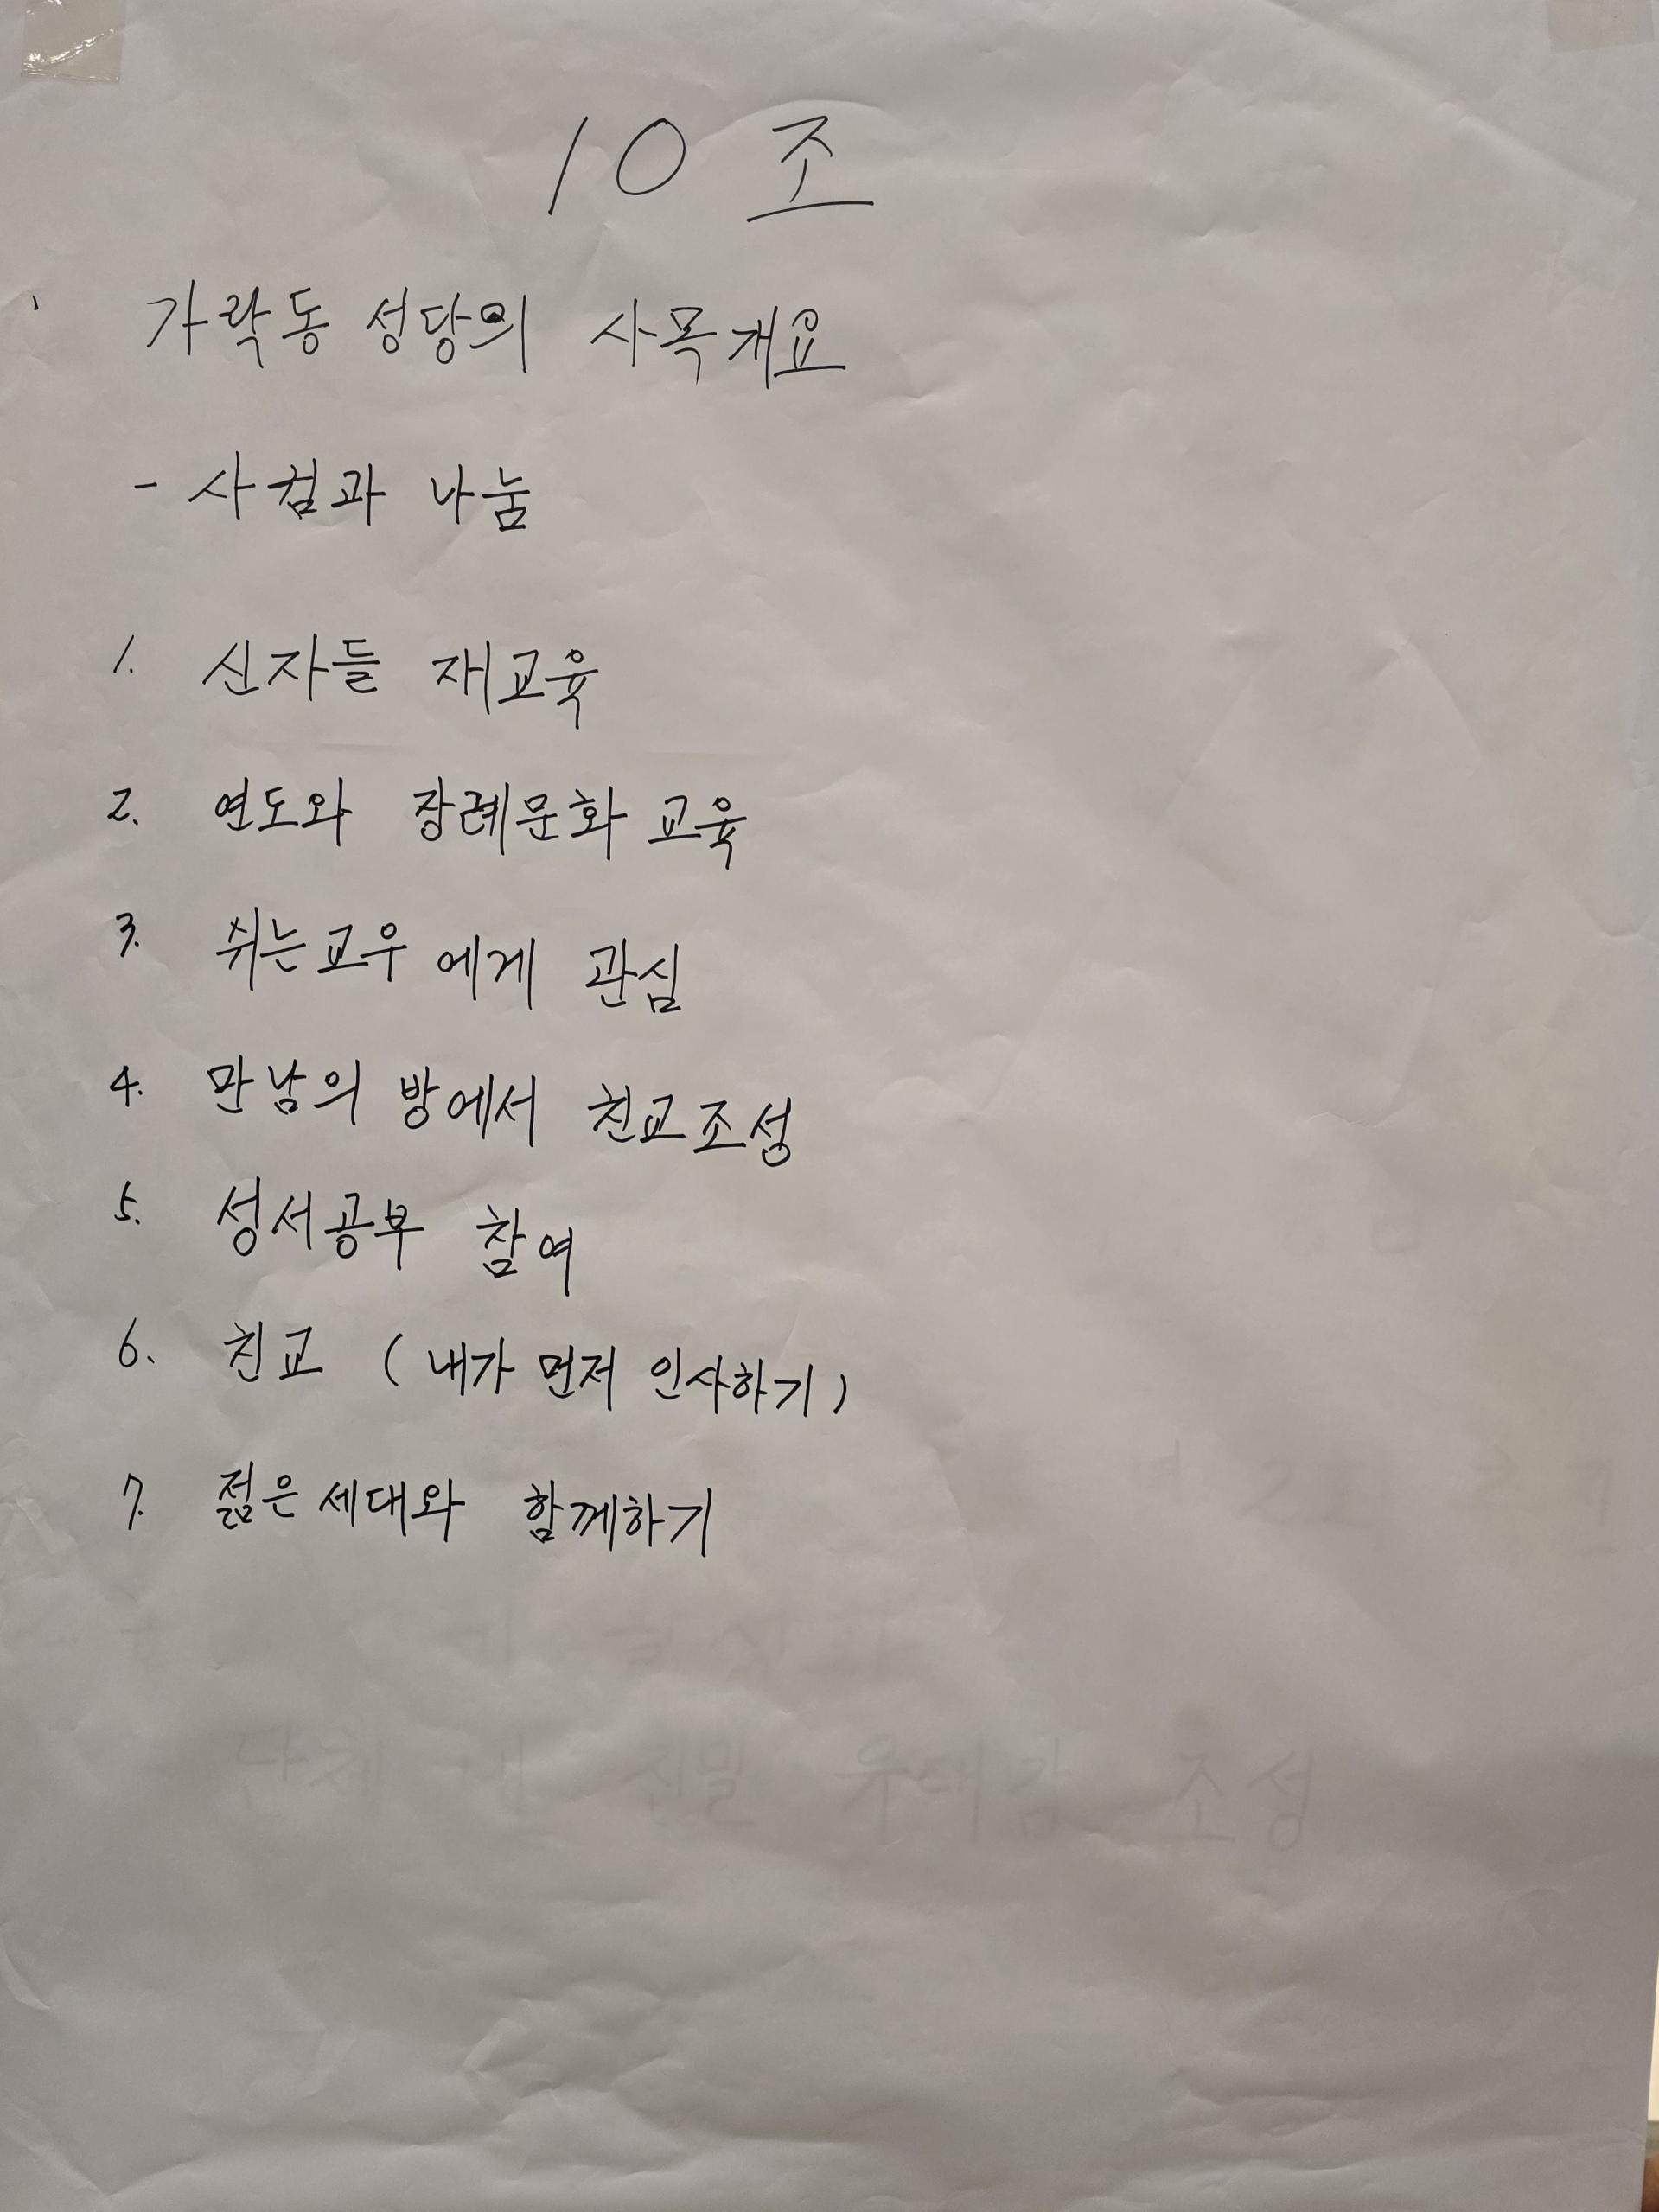 10 조
가락동 성당의 사목개요
- 사컴과 나눔
1. 신자들 재교육
2. 연도와 장례문화 교육
3. 쉬는교우 에게 관심
4. 만남의 방에서 친교조성
5. 성서공부 참여
6. 친교 (내가 먼저 인사하기)
7. 젊은세대와 함께하기
유대감 조성